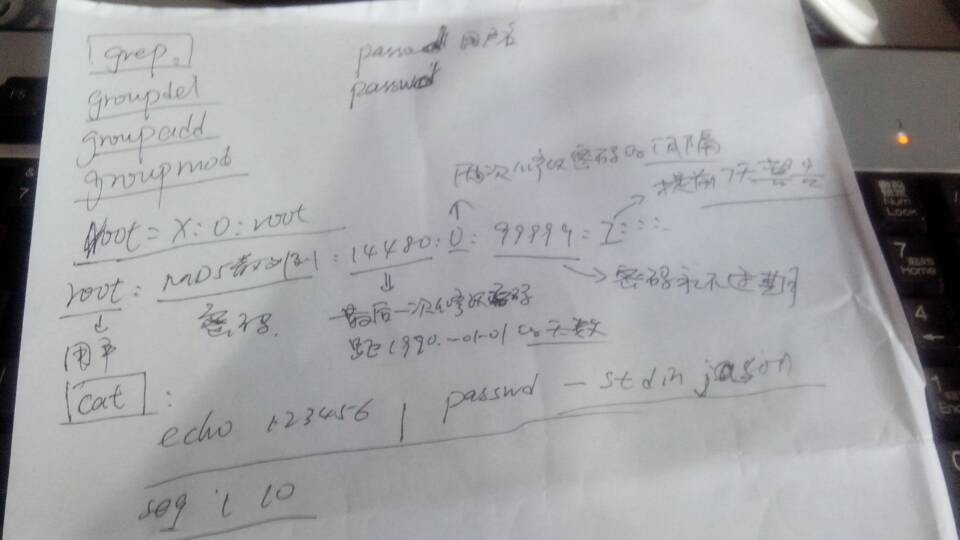 grep.
passwd 用户名
groupdel
passwd
groupadd
groupmod
两次修改密码の间隔
提前7天
Root = X : 0 : root
root : MD5 : 14480 : 0 : 99999 : 7 : : :
密码
最后一次修改密码
密码永不过期
距1990.-01-01 の天数
用户
cat :
echo 123456 | passwd -stdin jason
seq 1 10
Num Lock
7 Home
4 ←
1 End